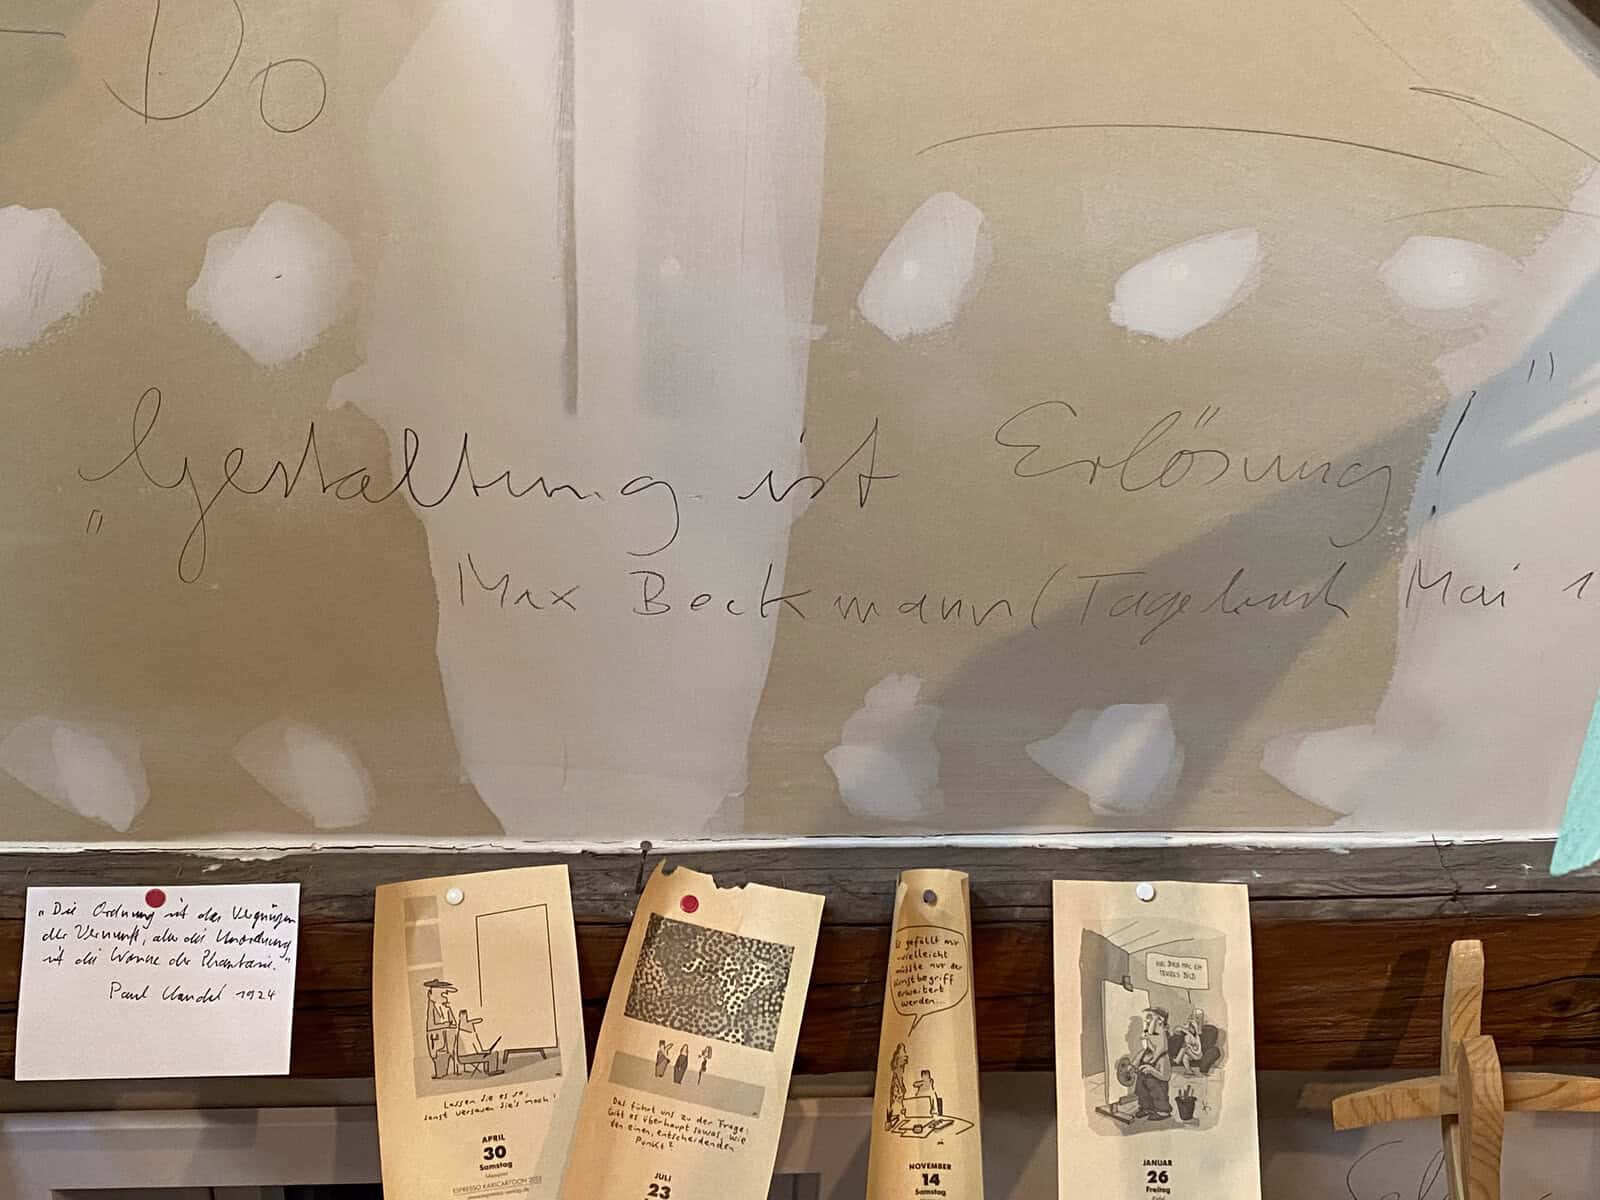 Do
„Gestaltung ist Erlösung!"
Max Beckmann (Tagebuch Mai 1
„Die Ordnung ist das Vergnügen
der Vernunft, aber die Unordnung
ist die Wonne der Phantasie."
Paul Claudel 1924
Lassen Sie es so,
sonst versauen Sie's noch!
APRIL
30
Samstag
ESPRESSO KARICARTOON 2022
Das führt uns zu der Frage:
Gibt es überhaupt sowas, wie
den einen, entscheidenden
Punkt?
JULI
23
Es gefällt mir
vielleicht
müsste nur der
Kunstbegriff
erweitert
werden...
NOVEMBER
14
Samstag
JANUAR
26
Freitag